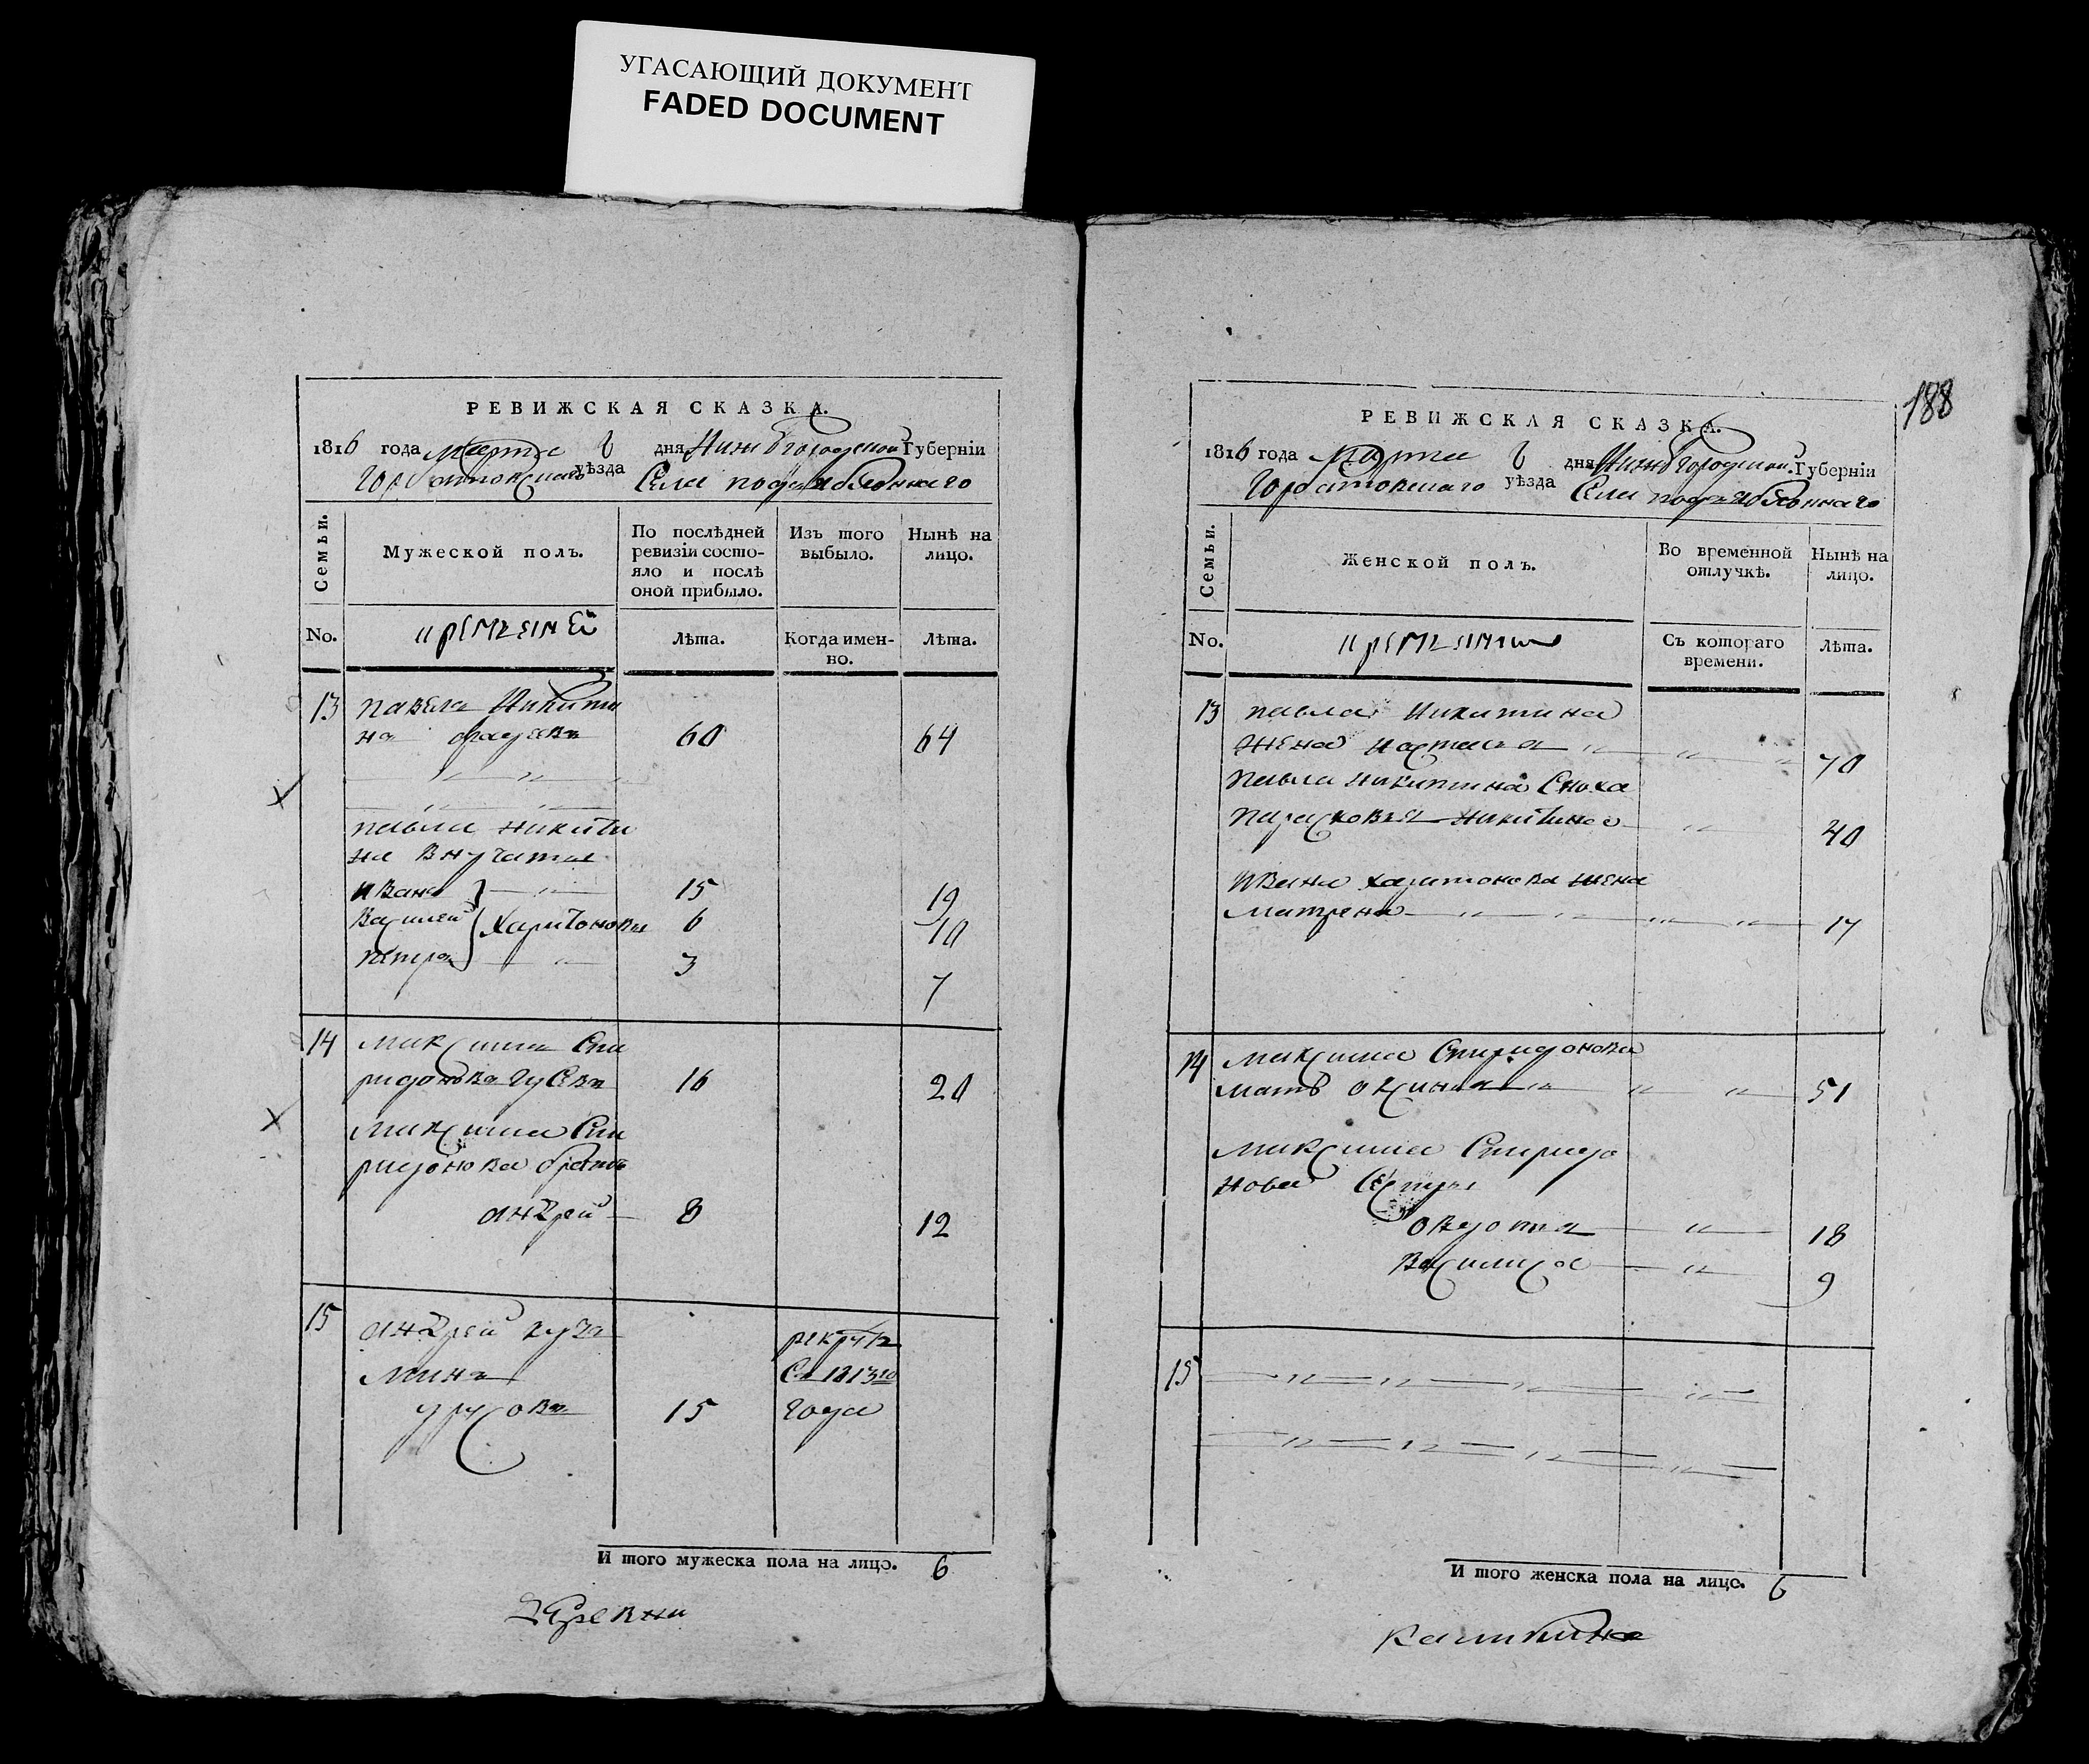 УГАСАЮЩИЙ ДОКУМЕНТ
FADED DOCUMENT
РЕВИЖСКАЯ СКАЗКА.
1816 года марта дня Нижегородской Губерніи
Горбатовскаго уѣзда Села подъяблоннаго
Семьи.
Мужеской полъ.
По послѣдней ревизіи состо-
яло и послѣ
оной прибыло.
Изъ того
выбыло.
Нынѣ на
лицо.
No.
Лѣта.
Когда имен-
но.
Лѣта.
13 павелъ Никити
нъ 60 64
павла никити
на внучаты
иванъ 15 19
Василей Харитоновы 6 10
петръ 3 7
14 максимъ Спи
ридоновъ гусевъ 16 20
максима Спи
ридонова братъ
андрей 8 12
15 андрей кузь рекрутъ
минъ съ 1813го
15 года
И того мужеска пола на лицо. 6
деревни
188
РЕВИЖСКАЯ СКАЗКА.
1816 года марта дня Нижегородской Губерніи
Горбатовскаго уѣзда Села подъяблоннаго
Семьи.
Женской полъ.
Во временной
отлучкѣ.
Нынѣ на
лицо.
No.
Съ котораго
времени.
Лѣта.
13 павла Никитина
жена настасья 70
павла никитина Сноха
парасковья никитина 40
ивана харитонова жена
матрена 17
14 максима Спиридонова
мать 51
максима Спиридо
нова Сестры
овдотья 18
Василиса 9
15
И того женска пола на лицо. 6